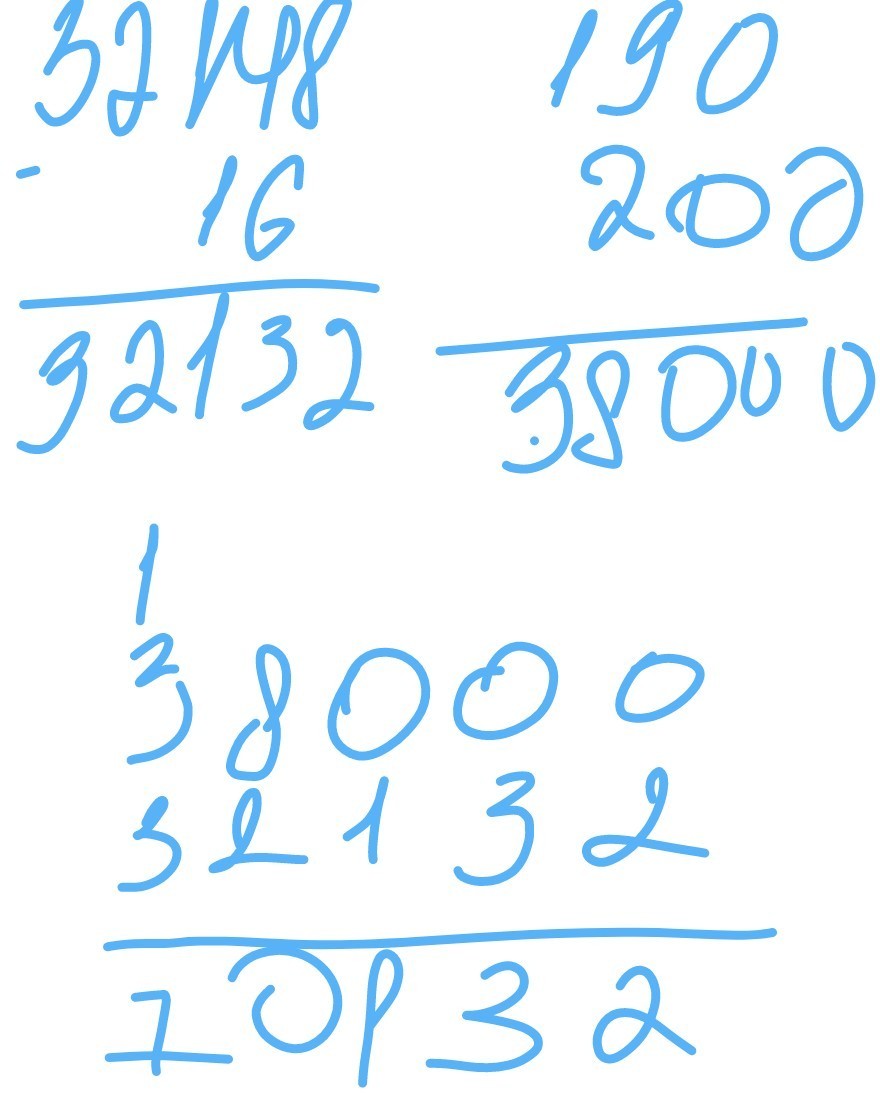 32148 190
- 16 200
32132 38000
1
38000
32132
70132